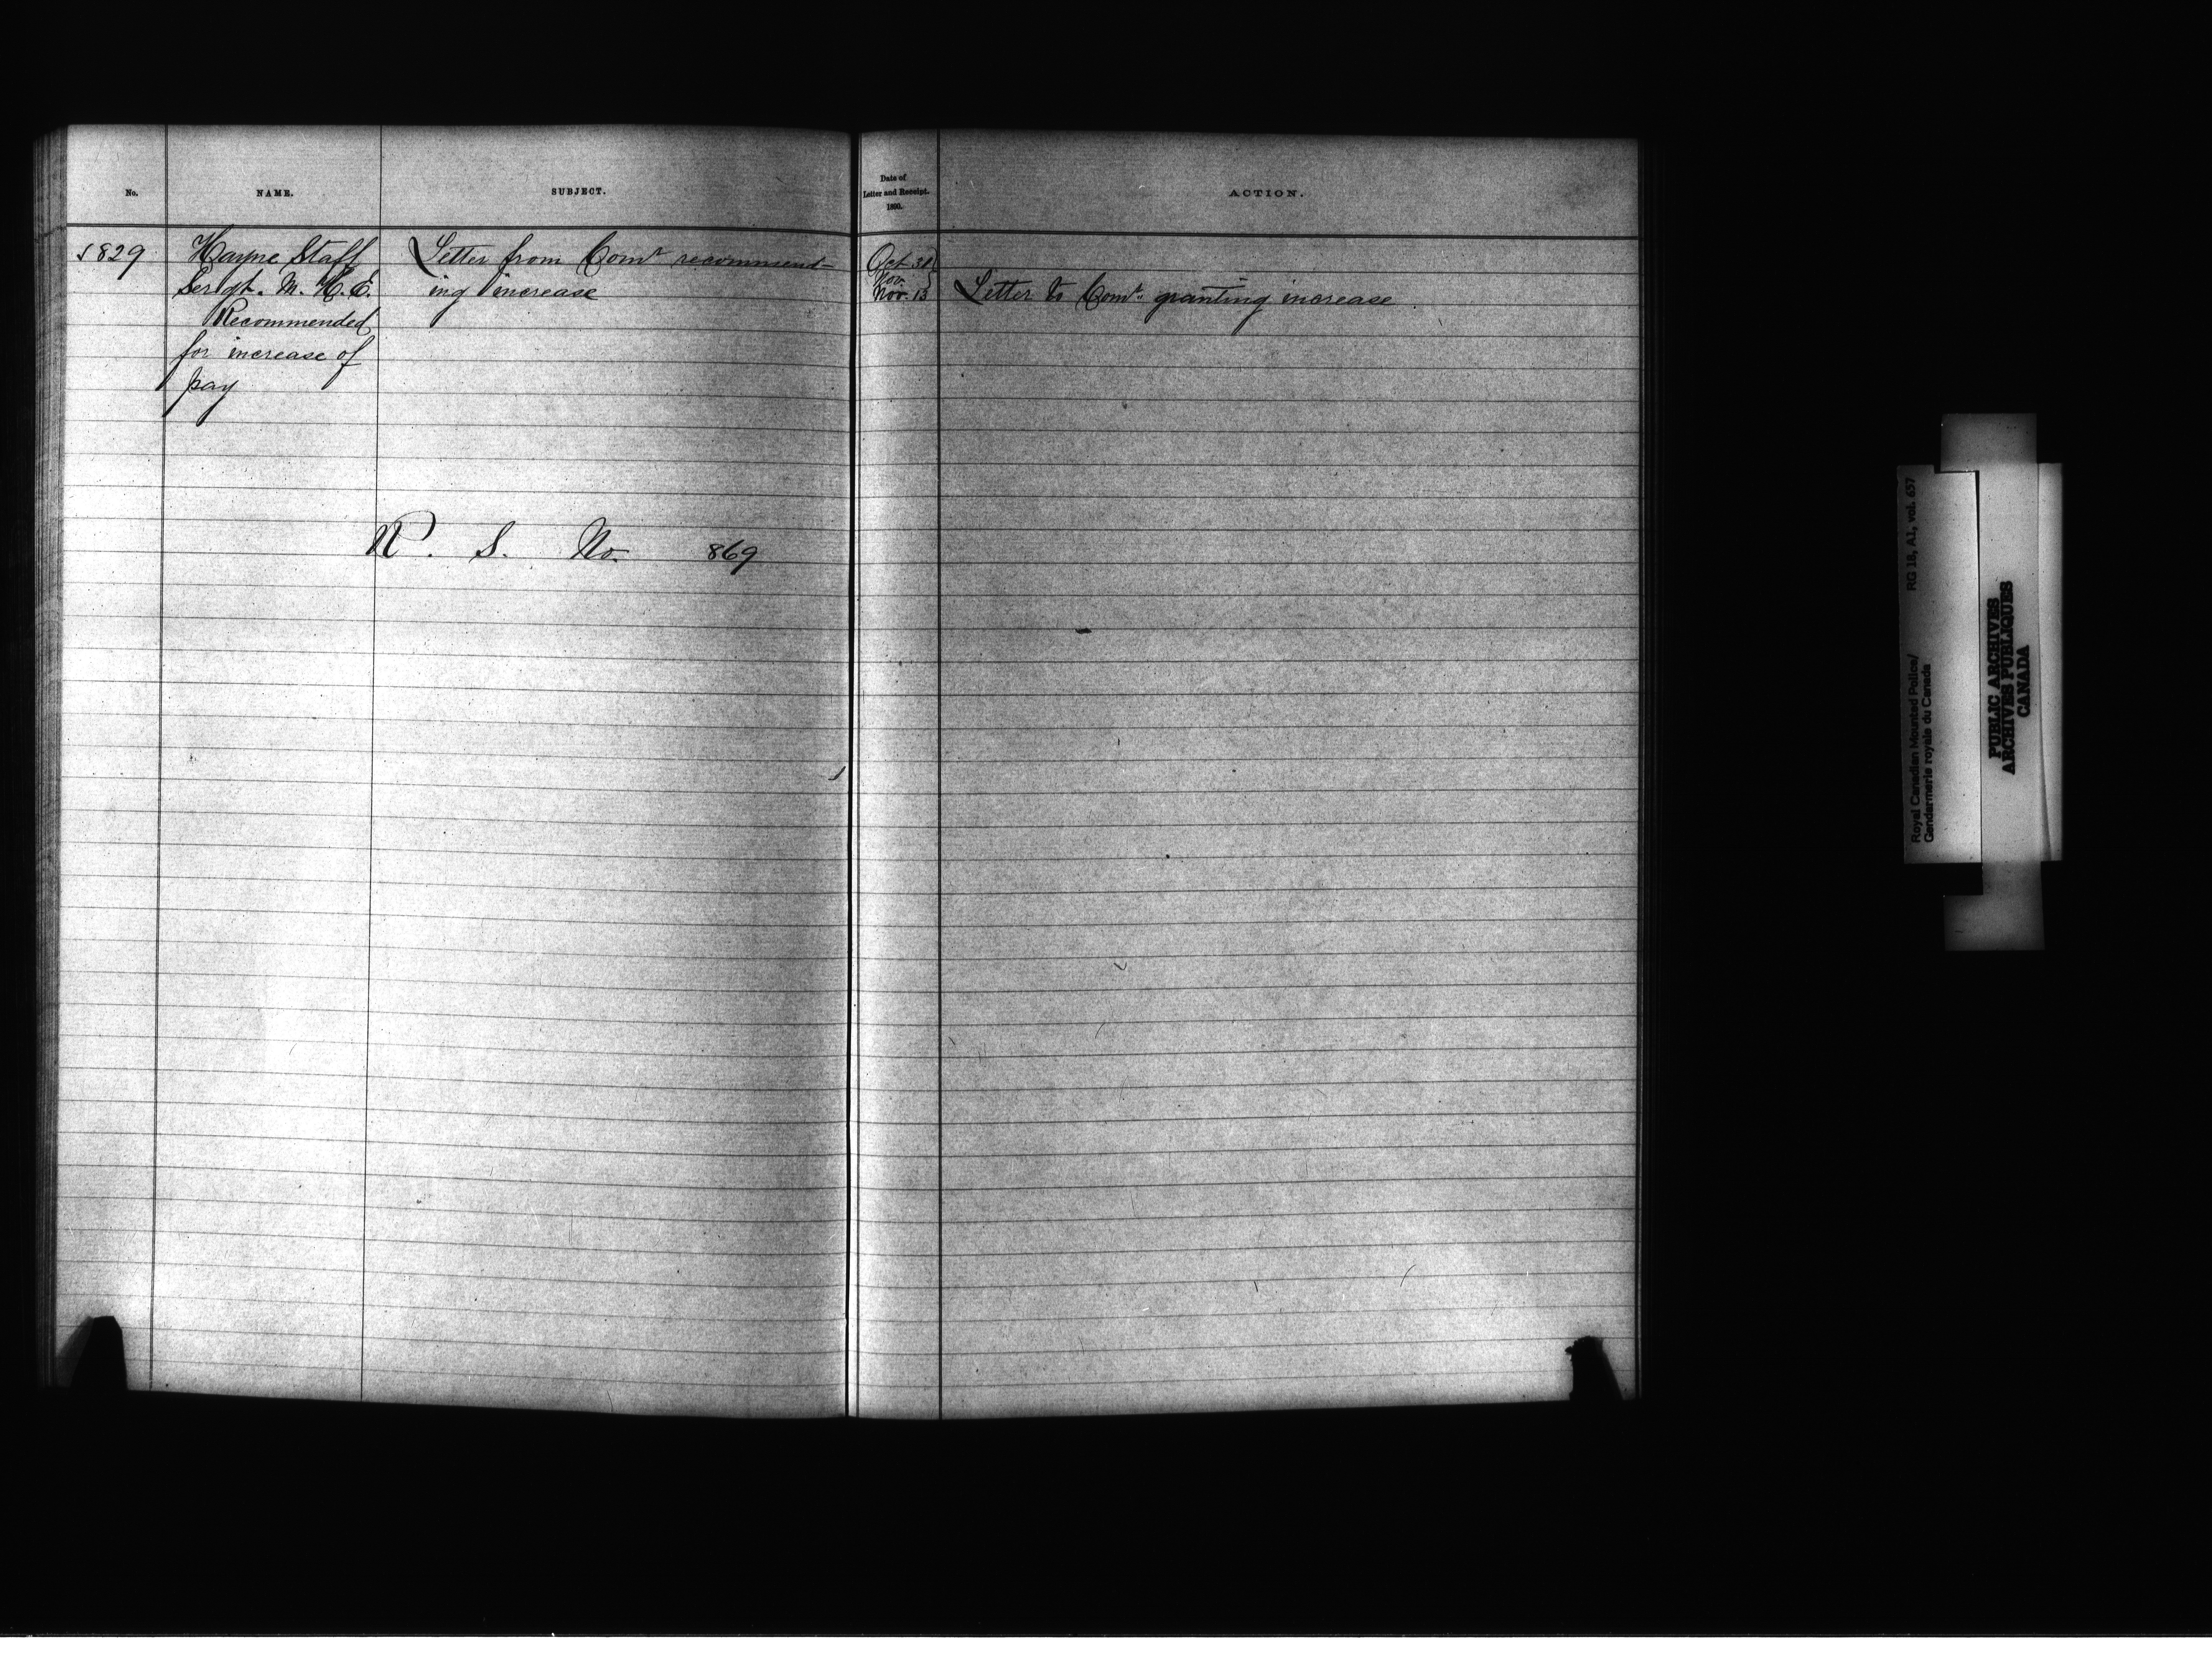 No.
NAME.
SUBJECT.
Date of
Letter and Receipt.
1890.
ACTION.
1829
Hayne Staff
Sergt. M. H. E.
Recommended
for increase of
pay
Letter from Comr recommend-
ing increase
Oct 31
Nov.
Nov. 13
Letter to Comr. granting increase
N. S. No. 869
RG 18, A1, vol. 657
Royal Canadian Mounted Police/
Gendarmerie royale du Canada
PUBLIC ARCHIVES
ARCHIVES PUBLIQUES
CANADA